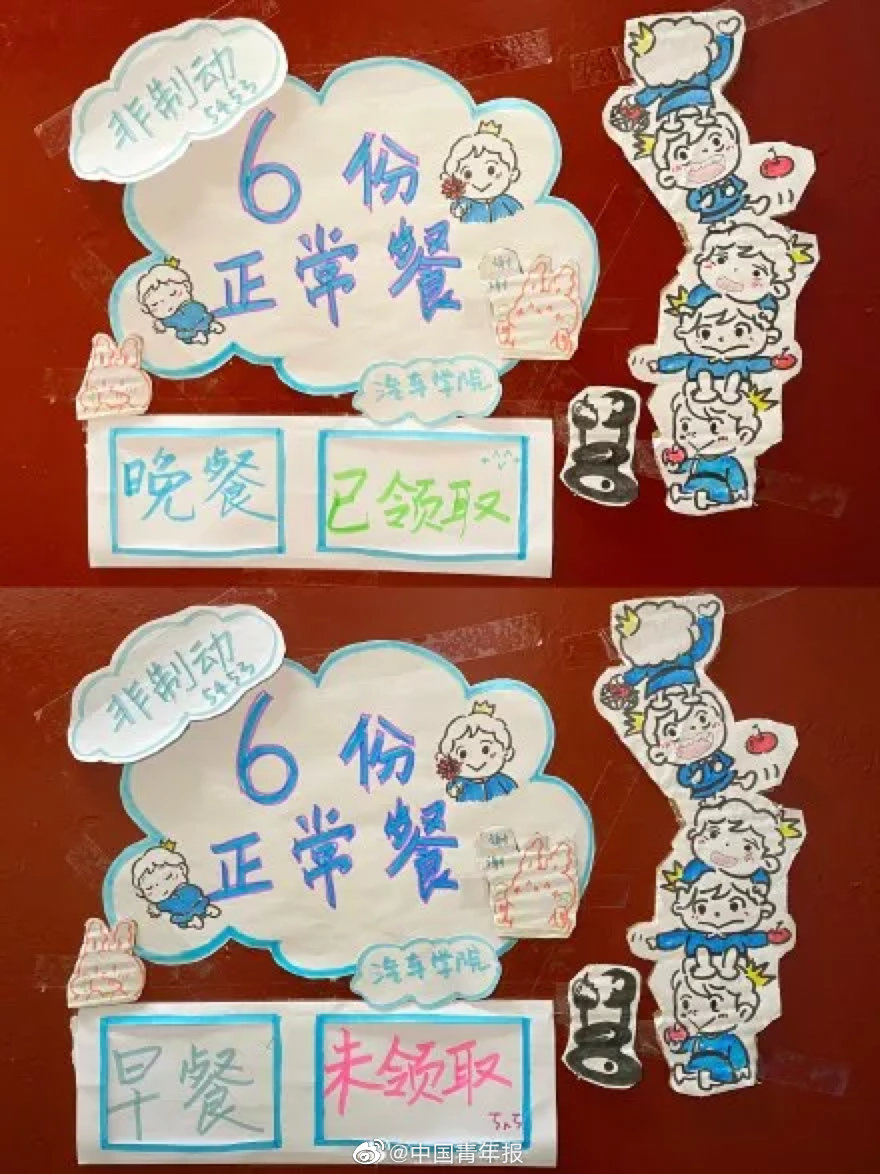 非制动
5453
6份
正常餐
谢
谢
汽车学院
晚餐
已领取
非制动
5453
6份
正常餐
谢
谢
汽车学院
早餐
未领取
@中国青年报